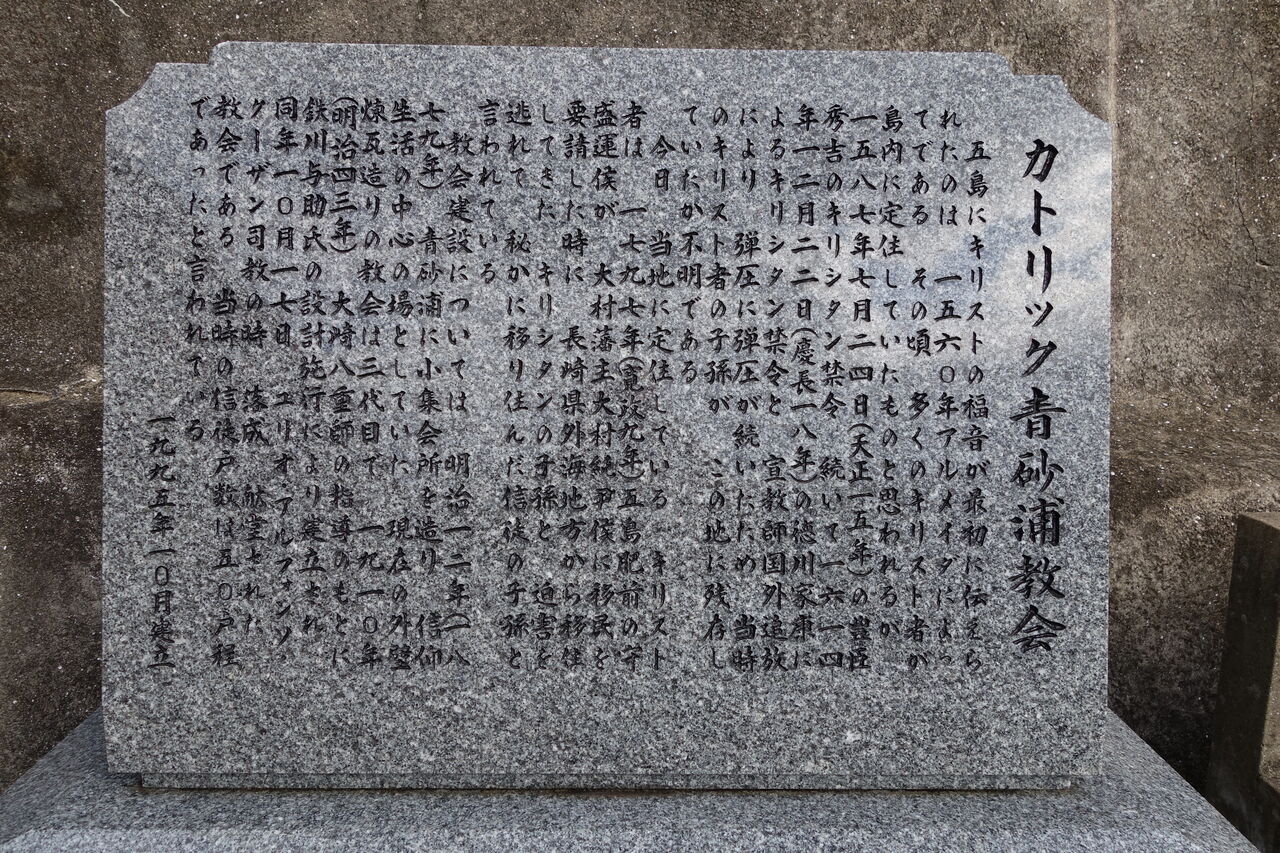 カトリック青砂浦教会
五島にキリストの福音が最初に伝えら
れたのは 一五六〇年アルメイダによっ
てである その頃 多くのキリスト者が
島内に定住していたものと思われるが
一五八七年七月二四日(天正一五年)の豊臣
秀吉のキリシタン禁令 続いて一六一四
年一二月二二日(慶長一八年)の徳川家康に
よるキリシタン禁令と 宣教師国外追放
により 弾圧に弾圧が続いたため 当時
のキリスト者の子孫が この地に残存し
ていたか不明である
今日 当地に定住している キリスト
者は 一七九七年(寛政九年)五島肥前の守
盛運侯が 大村藩主大村純尹侯に移民を
要請した時に 長崎県外海地方から移住
してきた キリシタンの子孫と 迫害を
逃れて 秘かに移り住んだ信徒の子孫と
言われている
教会建設については 明治一二年(一八
七九年)青砂浦に小集会所を造り 信仰
生活の中心の場としていた 現在の外壁
煉瓦造りの教会は三代目で 一九一〇年
(明治四三年) 大﨑八重師の指導のもとに
鉄川与助氏の設計施行により建立され
同年一〇月一七日 ユリオ アルファンソ
クーザン司教の時 落成 献堂された
教会である 当時の信徒戸数は五〇戸程
であったと言われている
一九九五年一〇月建立